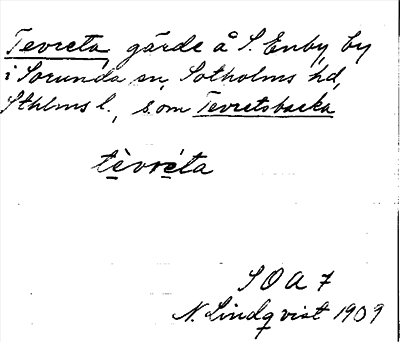 Tevreta, gärde å S. Enby by
i Sorunda sn, Sotholms hd,
Sthlms l., som Tevretsbacka
tèvréta
SOA 7
N. Lindqvist 1909